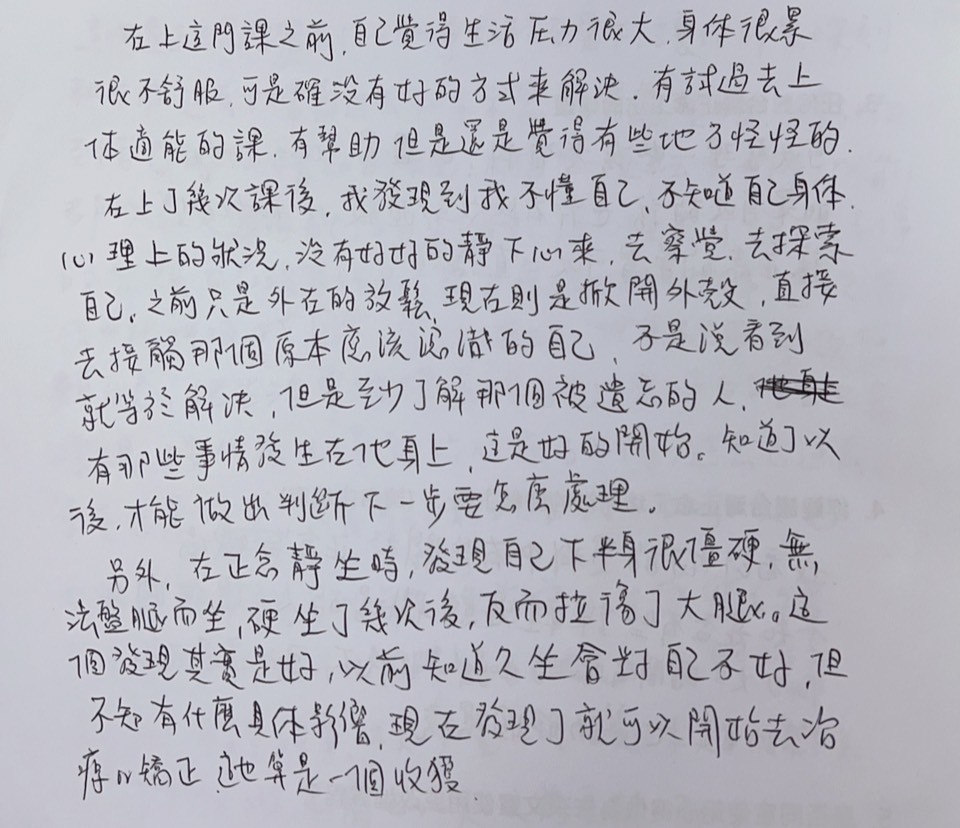 在上這門課之前,自己覺得生活压力很大,身体很累
很不舒服,可是確沒有好的方式来解決,有試過去上
体適能的課,有幫助但是還是覺得有些地方怪怪的.
在上了幾次課後,我發現到我不懂自己,不知道自己身体.
心理上的狀況,沒有好好的靜下心來,去察覺,去探索
自己,之前只是外在的放鬆,現在則是掀開外殼,直接
去接觸那個原本應該認識的自己,不是說看到
就等於解決,但是至少了解那個被遺忘的人,
有那些事情發生在他身上,這是好的開始。知道了以
後,才能做出判断下一步要怎麼處理。
另外,在正念靜坐時,發現自己下半身很僵硬,無
法盤腿而坐,硬坐了幾次後,反而拉傷了大腿。这
個發現其實是好,以前知道久坐會對自己不好,但
不知有什麼具体影響,現在發現了就可以開始去治
療以矯正,這也算是一個收獲.